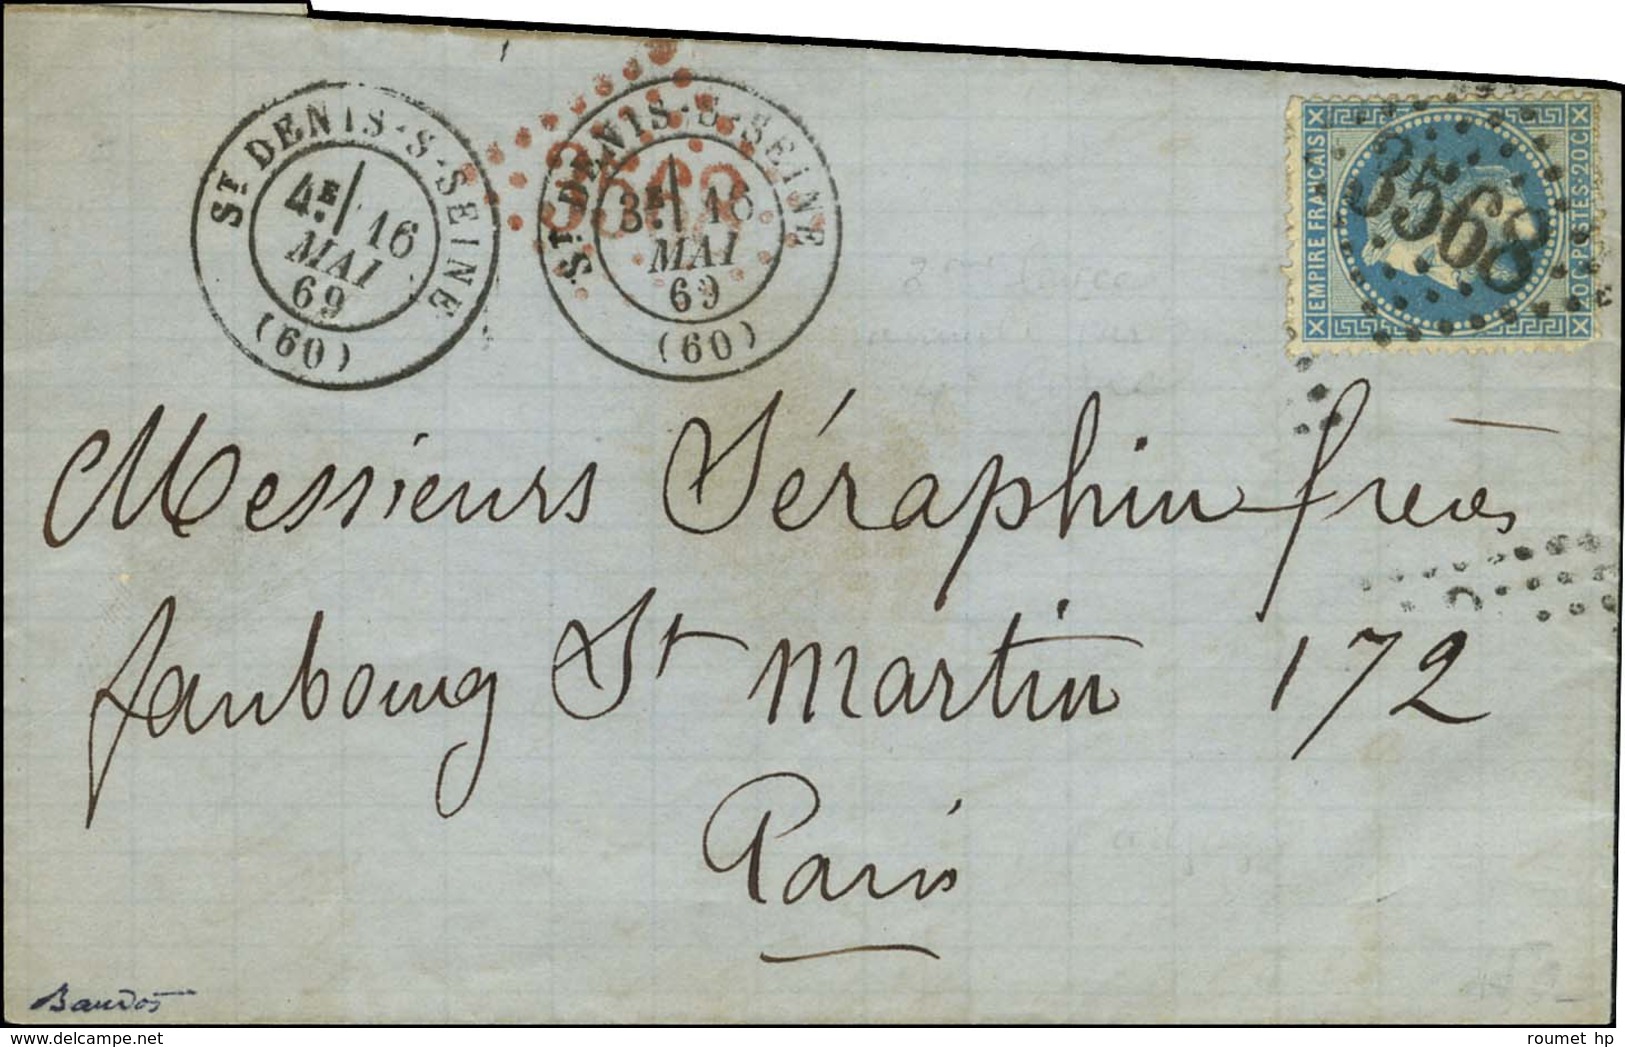 ST DENIS-S-SEINE
4E/ 16
MAI
69
(60)
ST DENIS-S-SEINE
3E/ 16
MAI
69
(60)
3568
EMPIRE FRANÇAIS
20 C POSTES 20 C
3568
Messieurs Séraphin frères
faubourg St Martin 172
Paris
Baudot
roumet hp